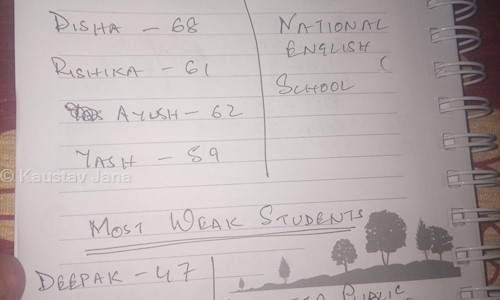 DISHA - 68
RISHIKA - 61
AYUSH - 62
YASH - 59
NATIONAL
ENGLISH
SCHOOL
© Kaustav Jana
MOST WEAK STUDENTS
DEEPAK - 47
PUBLIC